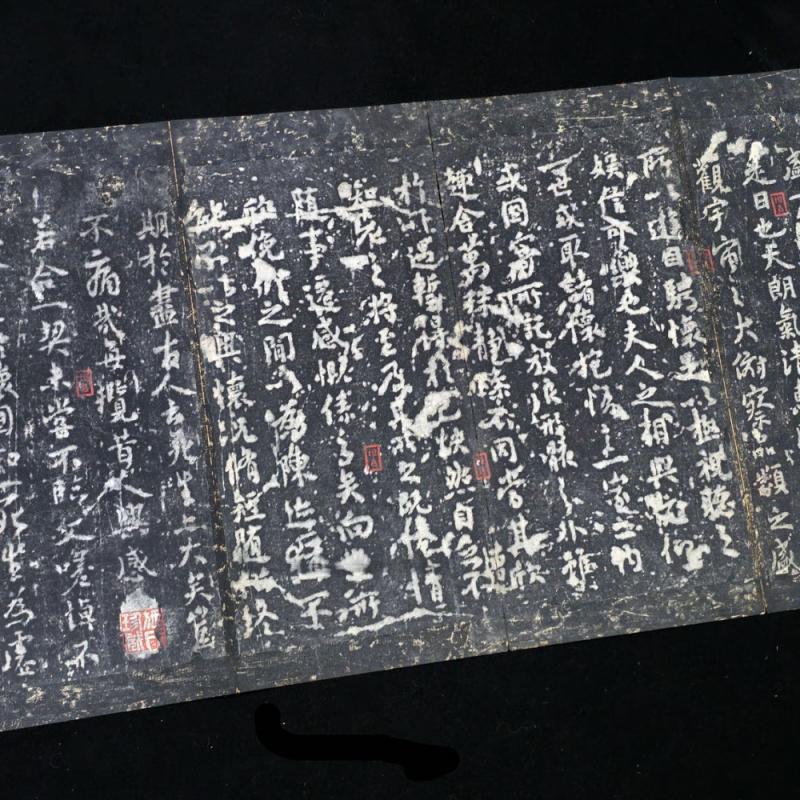 是日也天朗氣清
觀宇宙之大俯察品類之盛
所以遊目騁懷足以極視聽之
娛信可樂也夫人之相與俯仰
一世或取諸懷抱悟言一室之內
或因寄所託放浪形骸之外雖
趣舍萬殊靜躁不同當其欣
於所遇暫得於己快然自足不
知老之將至及其所之既惓情
隨事遷感慨係之矣向之所
欣俛仰之間以為陳迹猶不
能不以之興懷況脩短隨化終
期於盡古人云死生亦大矣豈
不痛哉每攬昔人興感
若合一契未嘗不臨文嗟悼不
懷固知一死生為虛